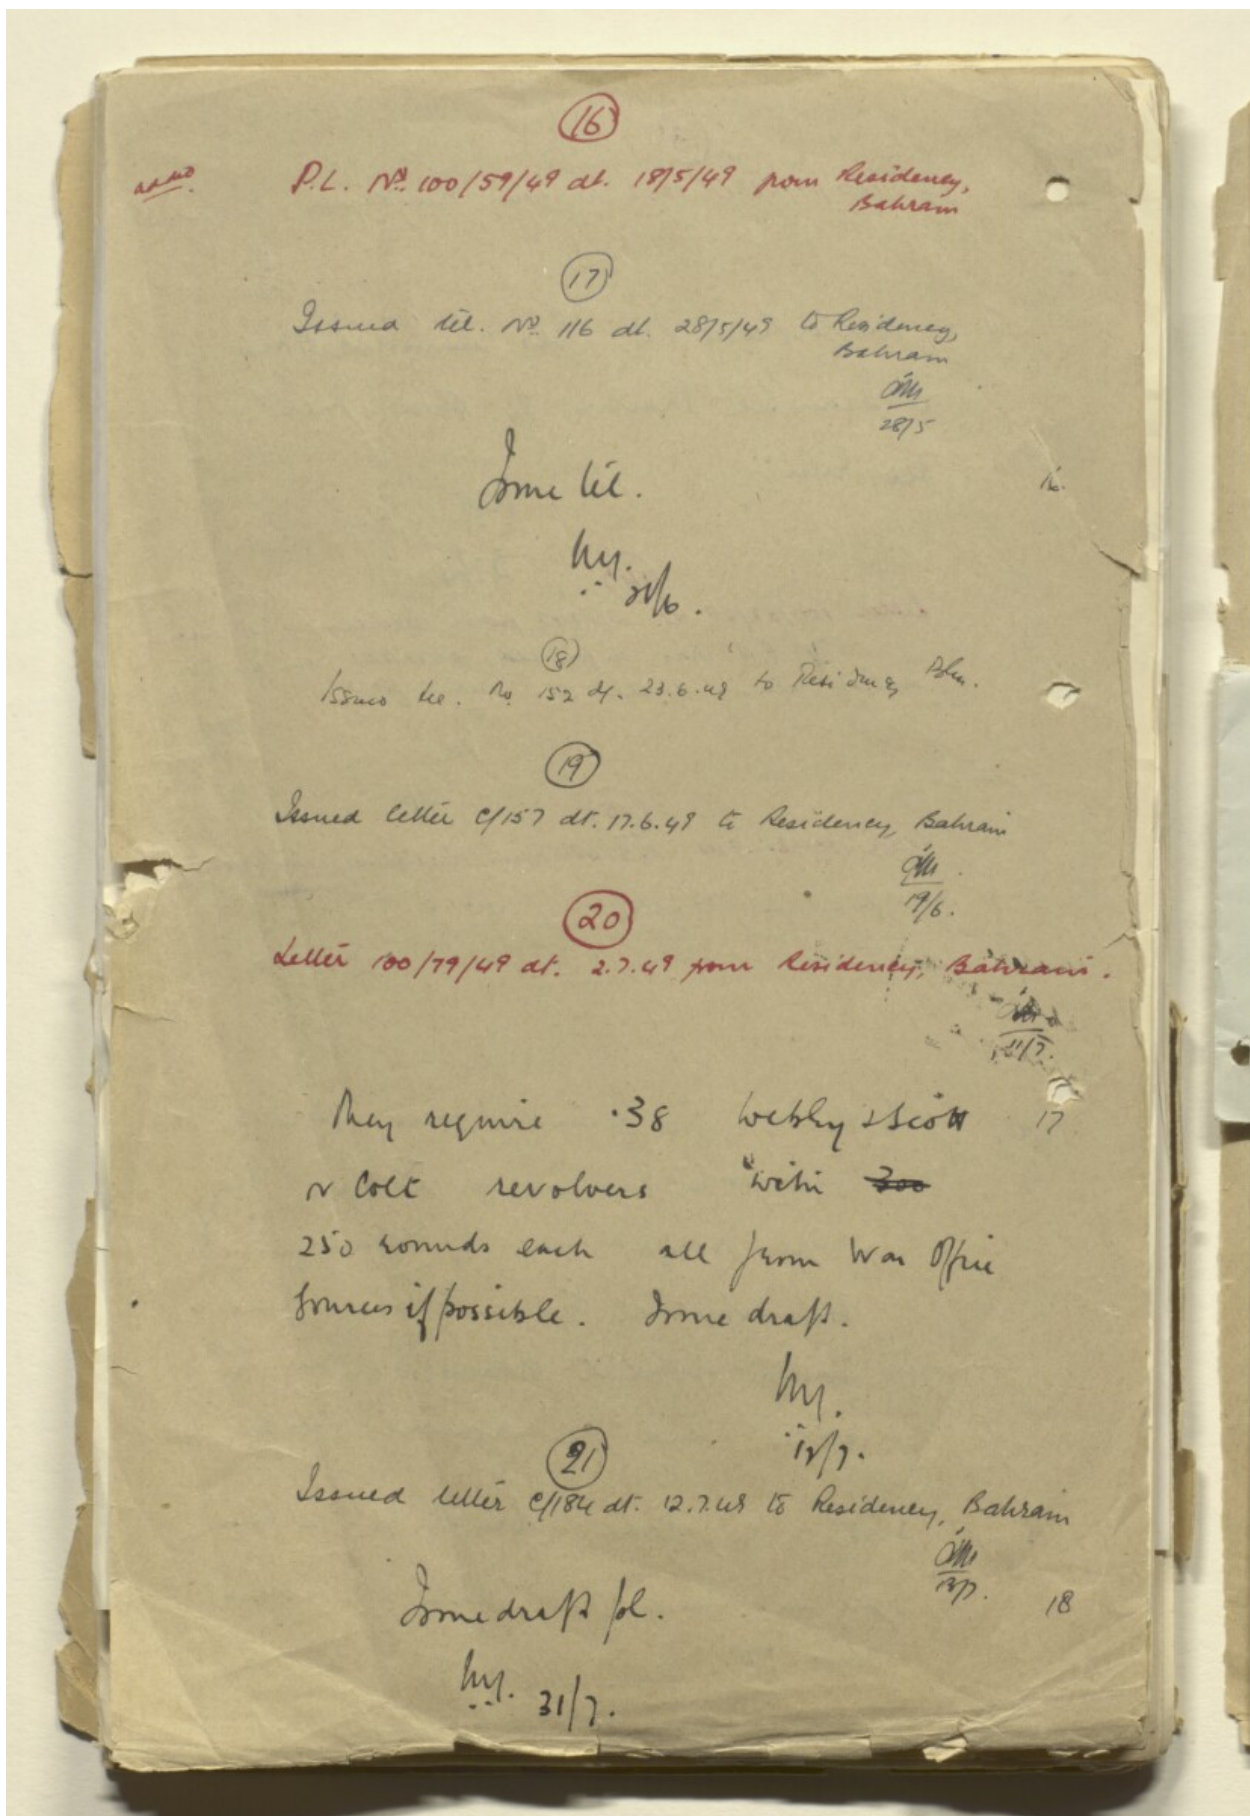 16
P.L. No. 100/59/49 dt. 18/5/49 from Residency,
Bahrain
17
Issued tel. No 116 dt. 28/5/49 to Residency,
Bahrain
28/5
Issue tel.
16.
18
Issued tel. No. 152 dt. 23.6.49 to Residency Bhn.
19
Issued letter C/157 dt. 17.6.49 to Residency, Bahrain
19/6.
20
Letter 100/79/49 dt. 2.7.49 from Residency, Bahrain.
11/7.
They require .38 Webley & Scott
17
or Colt revolvers with 300
250 rounds each all from War Office
Sources if possible. Issue draft.
12/7.
21
Issued letter C/184 dt. 12.7.49 to Residency, Bahrain
13/7.
18
Issue draft pl.
31/7.